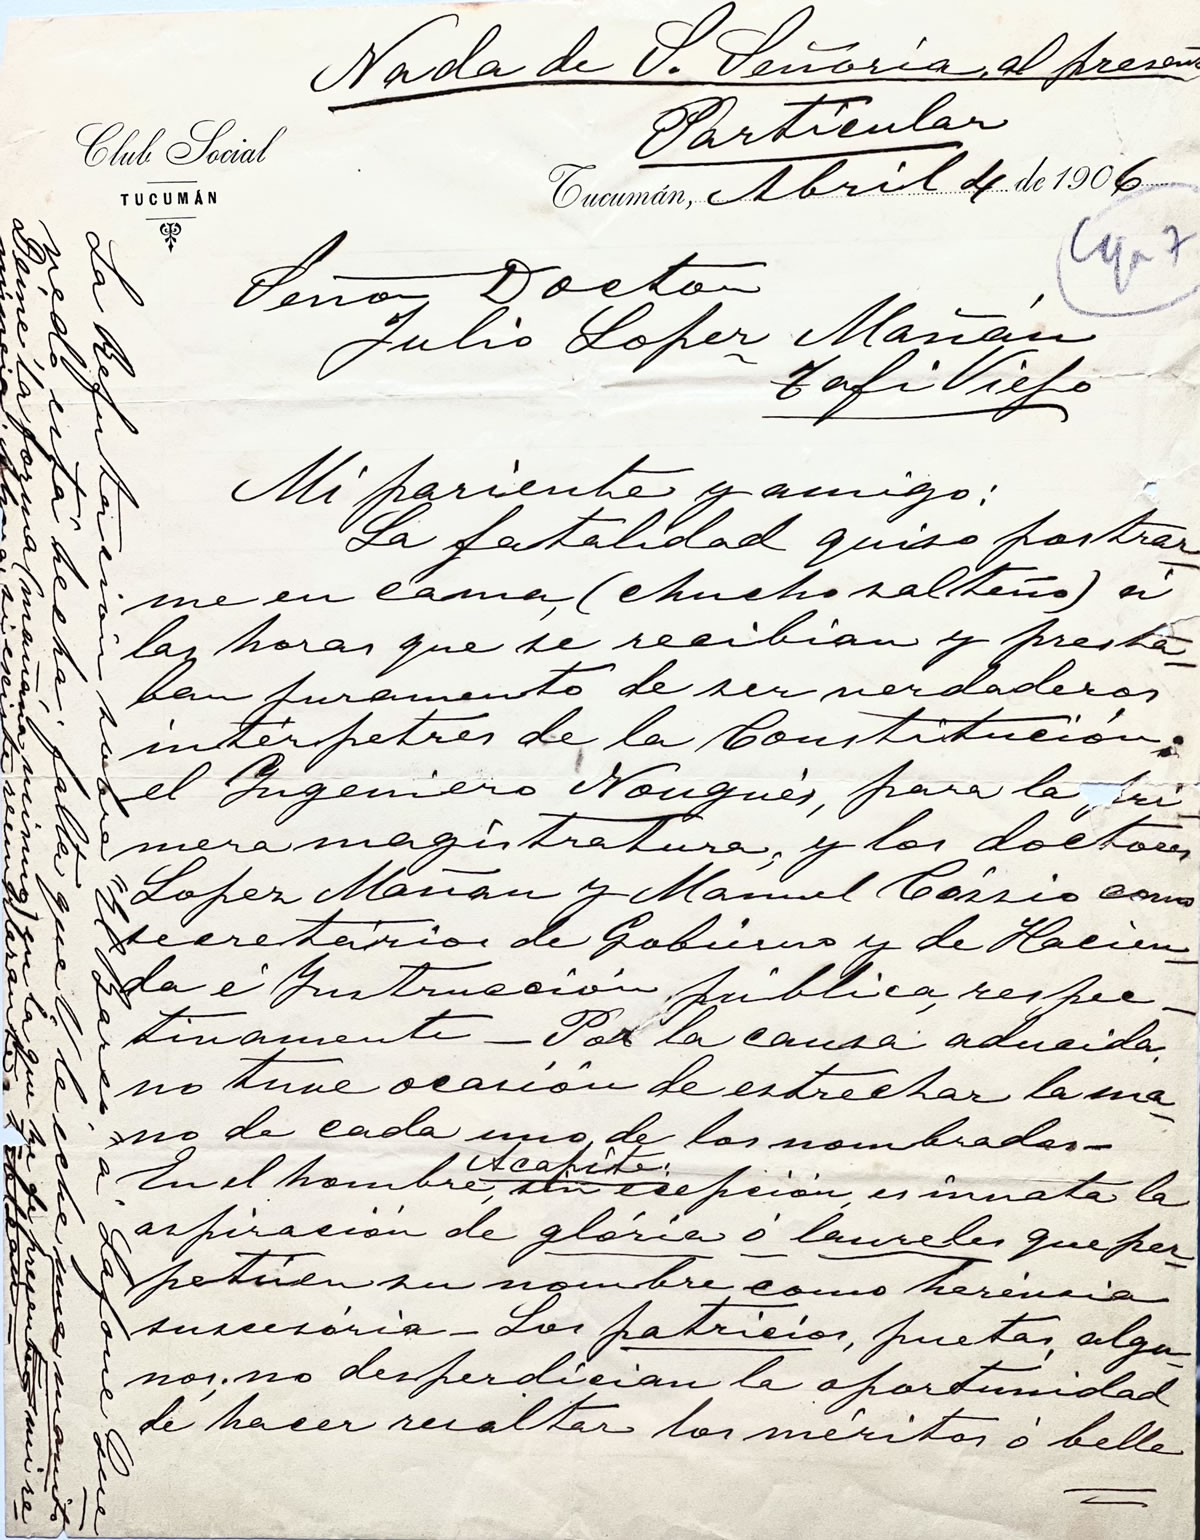 Nada de S. Señoría, al presen
Particular
Club Social
TUCUMÁN
Tucumán, Abril 4 de 1906
Señor Doctor
Julio Lopez Mañán
Tafí Viejo
Mi pariente y amigo:
La fatalidad quiso postrar
me en cama, (chucho salteño) á
las horas que se recibian y presta-
ban juramento de ser verdaderos
intérpetres de la Constitución;
el Ingeniero Nougués, para la pri
mera magistratura, y los doctores
Lopez Mañan y Manuel Cóssio como
secretários de Gobiérno y de Hacien-
da é Instrucción pública, respec-
tivamente - Por la causa aducida,
no tuve ocasión de estrechar la ma-
no de cada uno de los nombrados-
Acapite:
En el hombre, sin ecepción, es innata la
aspiración de glória ó laureles que per-
petúen su nombre como heréncia
suscesória - Los patricios, puetas, algu-
nos; no desperdician la oportunidad
de hacer resaltar los méritos ó belle
La Refutación sobre "El Bares" á Lafone Que
vedo está hecha; falta que V. le eche
Deme la forma (mañana mismo) en la que he de presentar mi re